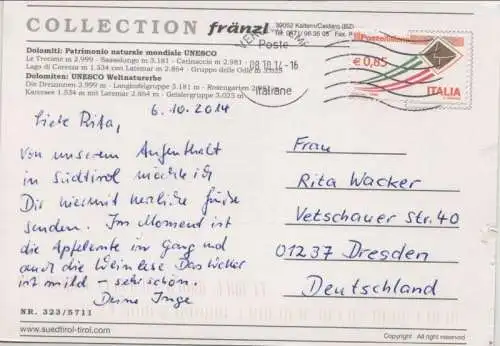 COLLECTION fränzl
39052 Kaltern/Caldaro (BZ)
Dolomiti: Patrimonio naturale mondiale UNESCO
Le Trecime m 2.999 - Sassolungo m 3.181 - Catinaccio m 2.981
Lago di Carezza m 1.534 con Latemar m 2.864 - Gruppo delle Odle m 3.025
Dolomiten: UNESCO Weltnaturerbe
Die Dreizinnen 2.999 m - Langkofelgruppe 3.181 m - Rosengarten
Karersee 1.534 m mit Latemar 2.864 m - Geislergruppe 3.025 m
Poste
08.10.14-16
Italiane
Posteitaliane
€ 0,85
ITALIA
6.10.2014
Liebe Rita,
von unserem Aufenthalt
in Südtirol möchte ich
Dir hiermit herzliche Grüße
senden. Im Moment ist
die Apfelernte in Gang und
auch die Weinlese. Das Wetter
ist mild – sehr schön.
Deine Inge
Frau
Rita Wacker
Vetschauer Str. 40
01237 Dresden
Deutschland
NR. 323/5711
www.suedtirol-tirol.com
Copyright All right reserved